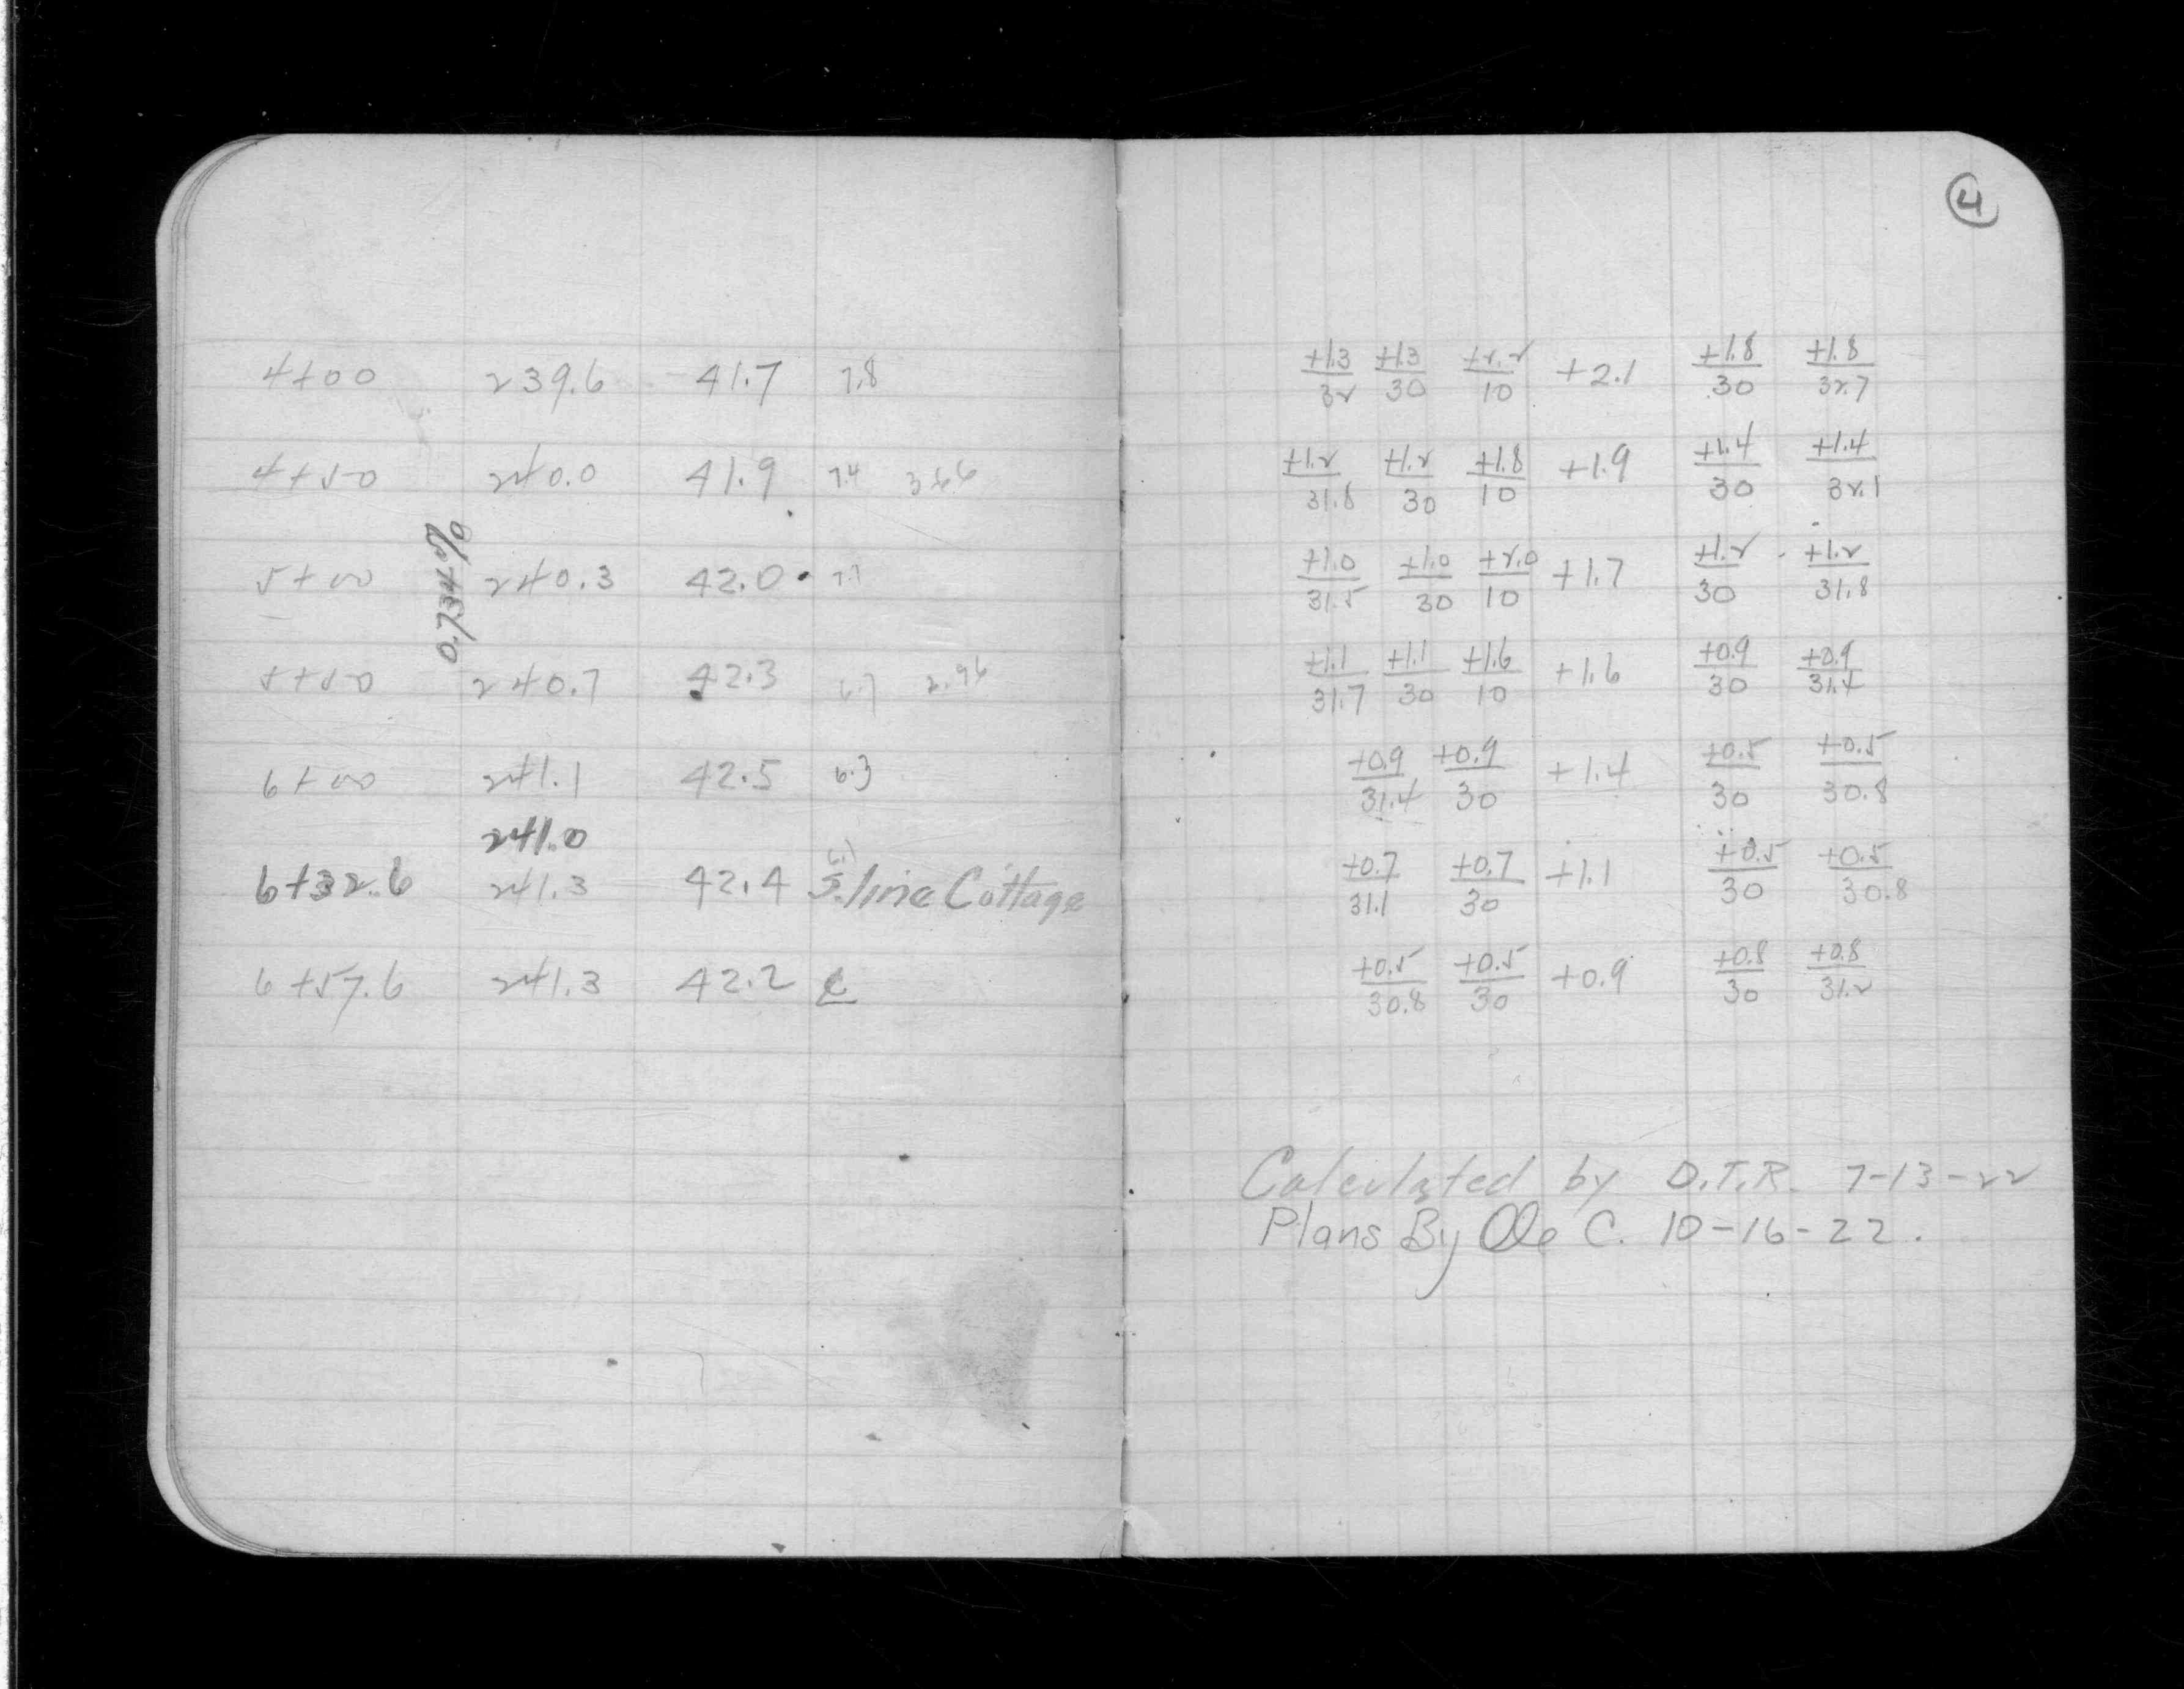 4
4+00 239.6 41.7 7.8 +1.3/32 +1.3/30 +2.2/10 +2.1 +1.8/30 +1.8/32.7
4+50 240.0 41.9 7.4 3.66 +1.2/31.8 +1.2/30 +1.8/10 +1.9 +1.4/30 +1.4/32.1
0.734%
5+00 240.3 42.0 7.1 +1.0/31.5 +1.0/30 +2.0/10 +1.7 +1.2/30 +1.2/31.8
5+50 240.7 42.3 6.7 2.96 +1.1/31.7 +1.1/30 +1.6/10 +1.6 +0.9/30 +0.9/31.4
6+00 241.1 42.5 6.3 +0.9/31.4 +0.9/30 +1.4 +0.5/30 +0.5/30.8
241.0
6+32.6 241.3 42.4 S. line Cottage +0.7/31.1 +0.7/30 +1.1 +0.5/30 +0.5/30.8
6+57.6 241.3 42.2 ℄ +0.5/30.8 +0.5/30 +0.9 +0.8/30 +0.8/31.2
Calculated by O.T.R. 7-13-22
Plans By Ole C. 10-16-22.